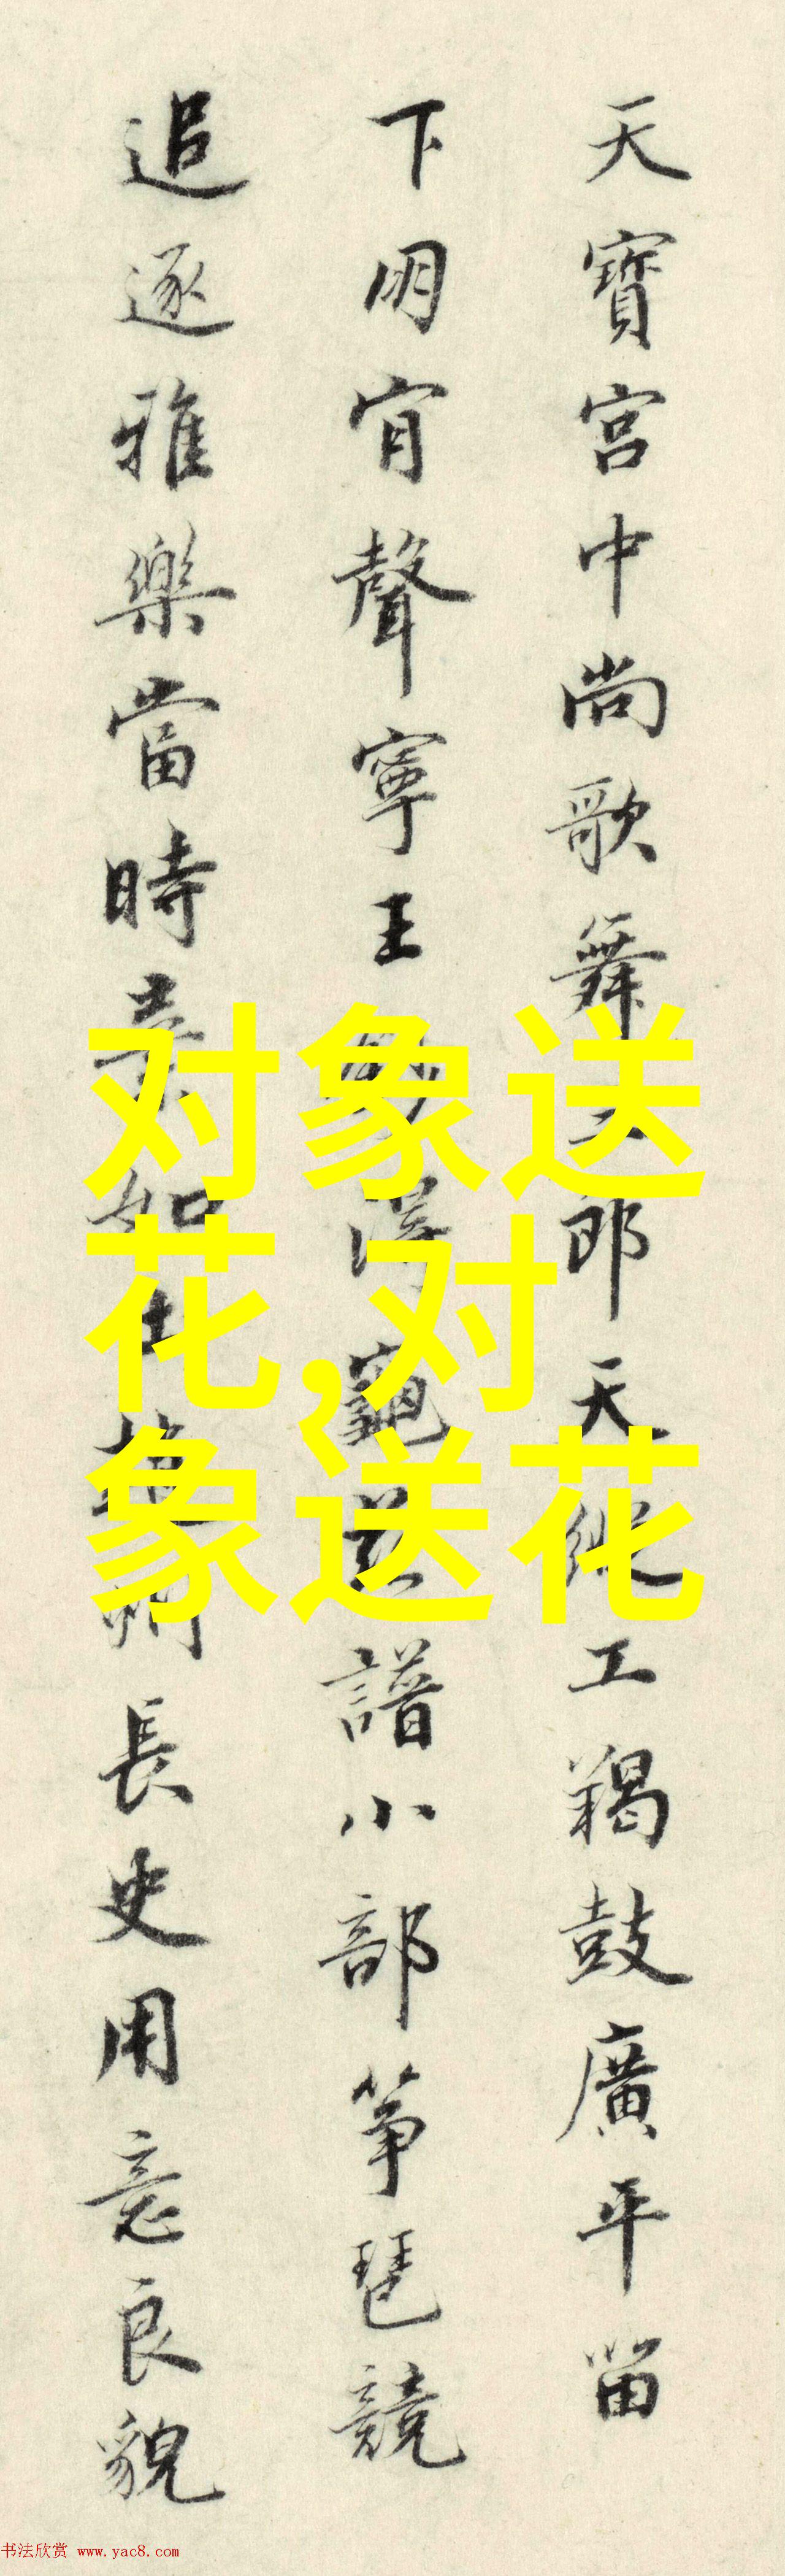 天寶宮中尚歌舞郎天縱工羯鼓廣平留
下明宵聲寧王譜小部箏琶競
追逐雅樂當時長史用意良貌
对象送
花,对
象送花
书法欣赏 www.yac8.com